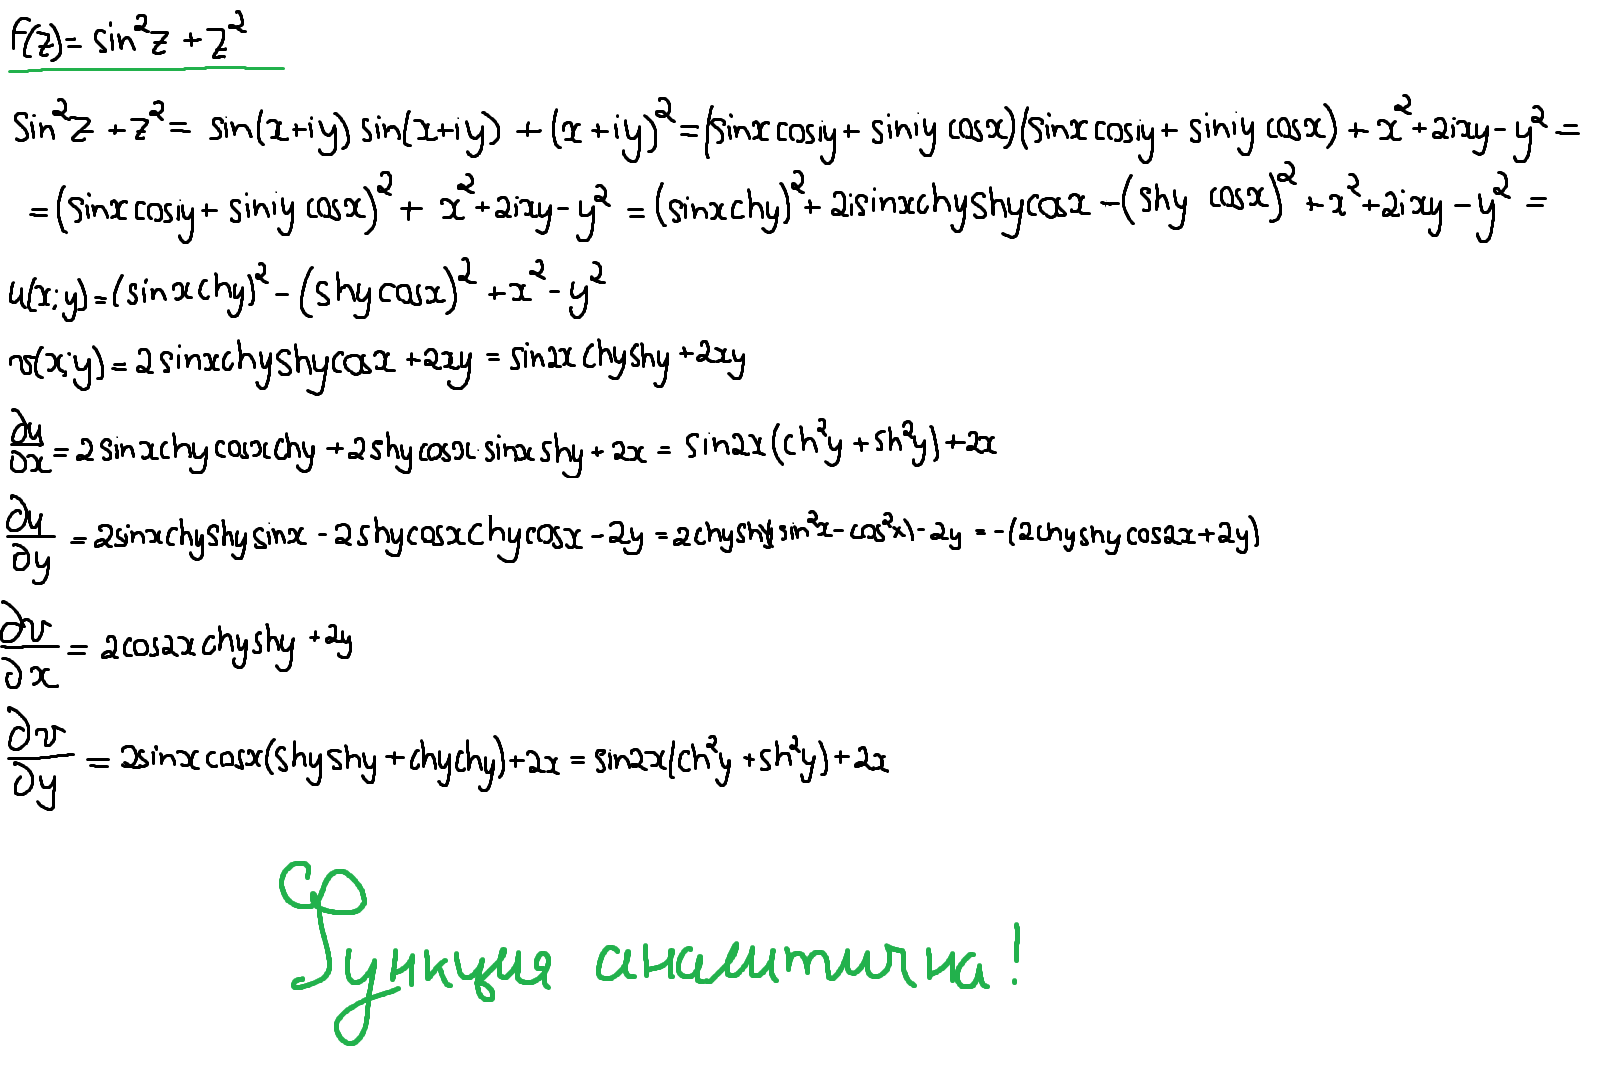 f(z)= sin²z + z²
Sin²z + z² = sin(x+iy) sin(x+iy) + (x+iy)² = (sinx cosiy + siniy cosx)(sinx cosiy + siniy cosx) + x² + 2ixy - y² =
= (sinx cosiy + siniy cosx)² + x² + 2ixy - y² = (sinx chy)² + 2isinxchyshycosx - (shy cosx)² + x² + 2ixy - y² =
u(x;y) = (sinxchy)² - (shycosx)² + x² - y²
v(x;y) = 2sinxchyshycosx + 2xy = sin2x chyshy + 2xy
∂u/∂x = 2sinxchycosxchy + 2shycosx·sinxshy + 2x = sin2x(ch²y + sh²y) + 2x
∂u/∂y = 2sinxchyshysinx - 2shycosxchycosx - 2y = 2chyshy(sin²x - cos²x) - 2y = -(2chyshycos2x + 2y)
∂v/∂x = 2cos2xchyshy + 2y
∂v/∂y = 2sinxcosx(shyshy + chychy) + 2x = sin2x(ch²y + sh²y) + 2x
Функция аналитична!